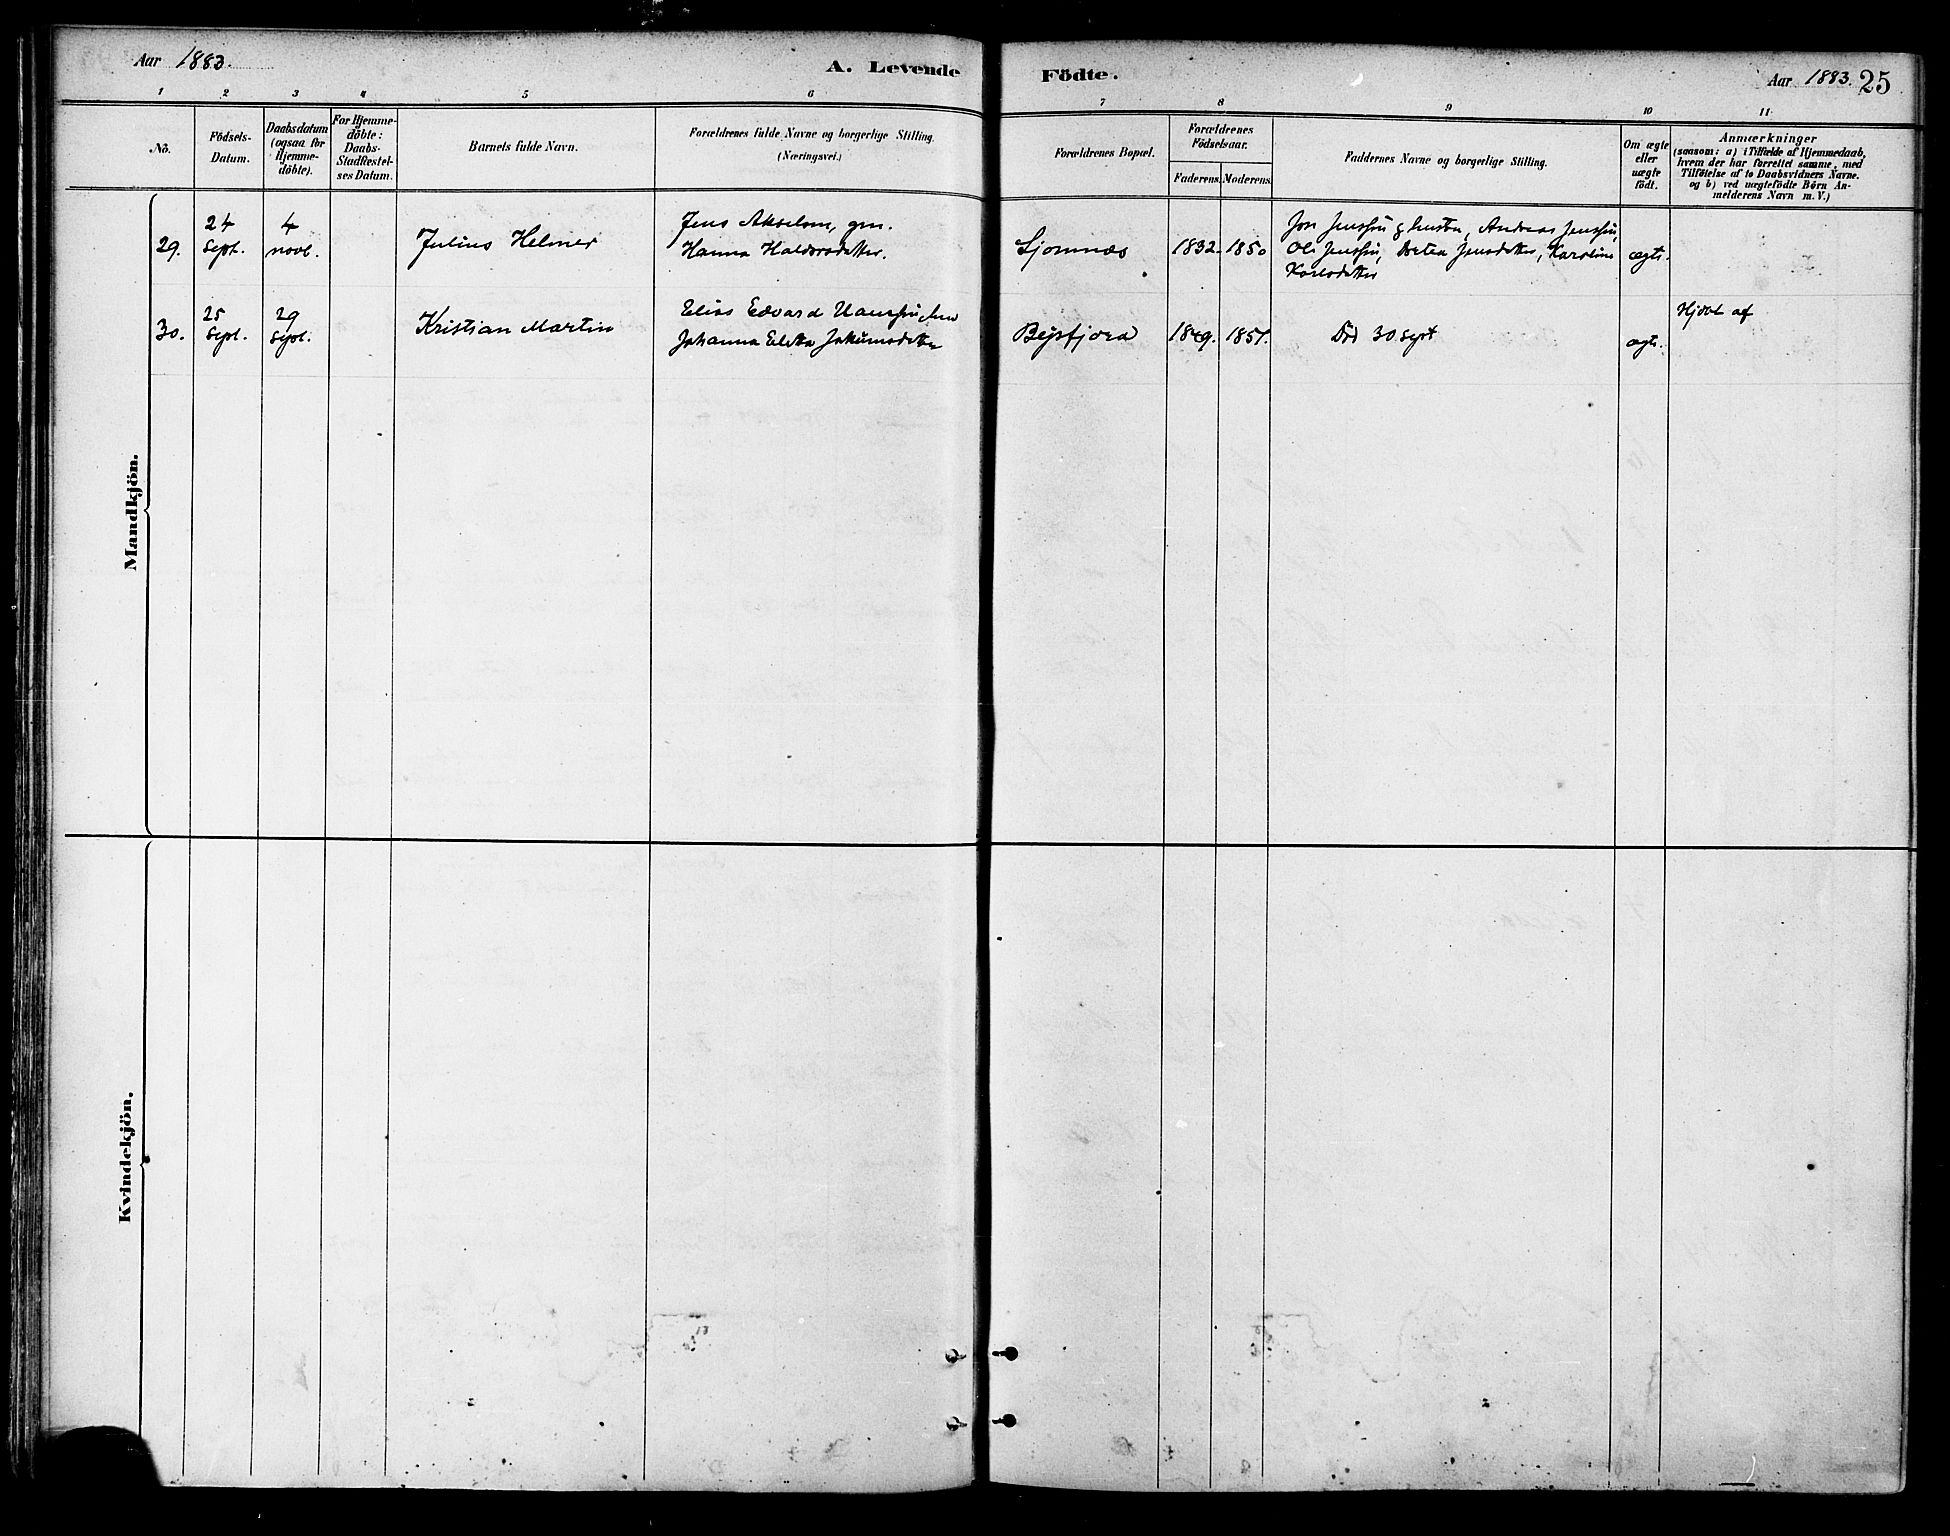 Aar 1883.
A. Levende Födte.
Aar 1883. 25
1 2 3 4 5 6 7 8 9 10 11
No.
Födsels-
Datum.
Daabsdatum
(ogsaa for
Hjemme-
döbte).
For Hjemme-
döbte:
Daabs-
Stadfæstel-
ses Datum.
Barnets fulde Navn.
Forældrenes fulde Navne og borgerlige Stilling.
(Næringsvei.)
Forældrenes Bopæl.
Forældrenes
Födselsaar.
Faderens. Moderens.
Faddernes Navne og borgerlige Stilling.
Om ægte
eller
uægte
födt.
Anmærkninger
(saasom: a) i Tilfælde af Hjemmedaab,
hvem der har forrettet samme, med
Tilföielse af to Daabsvidners Navne.
og b) ved uægtefödte Börn An-
melderens Navn m. V.)
Mandkjön.
29.
24
Sept.
4
novb.
Julius Helmer
Jens Akselsen, gm.
Hanna Haldorsdatter.
Sjomnæs
1832. 1850
Jon Jenssen & hustru, Andreas Jenssen,
Ole Jenssen, Dortea Jensdatter, Karoline
Karlsdatter
ægte.
30.
25
Sept.
29
Sept.
Kristian Martin
Elias Edvard Hanssen
Johanna Eletta Jakumsdatter
Bejsfjord
1849. 1857.
Död 30 Sept
ægte.
Hjdöbt af
Kvindekjön.